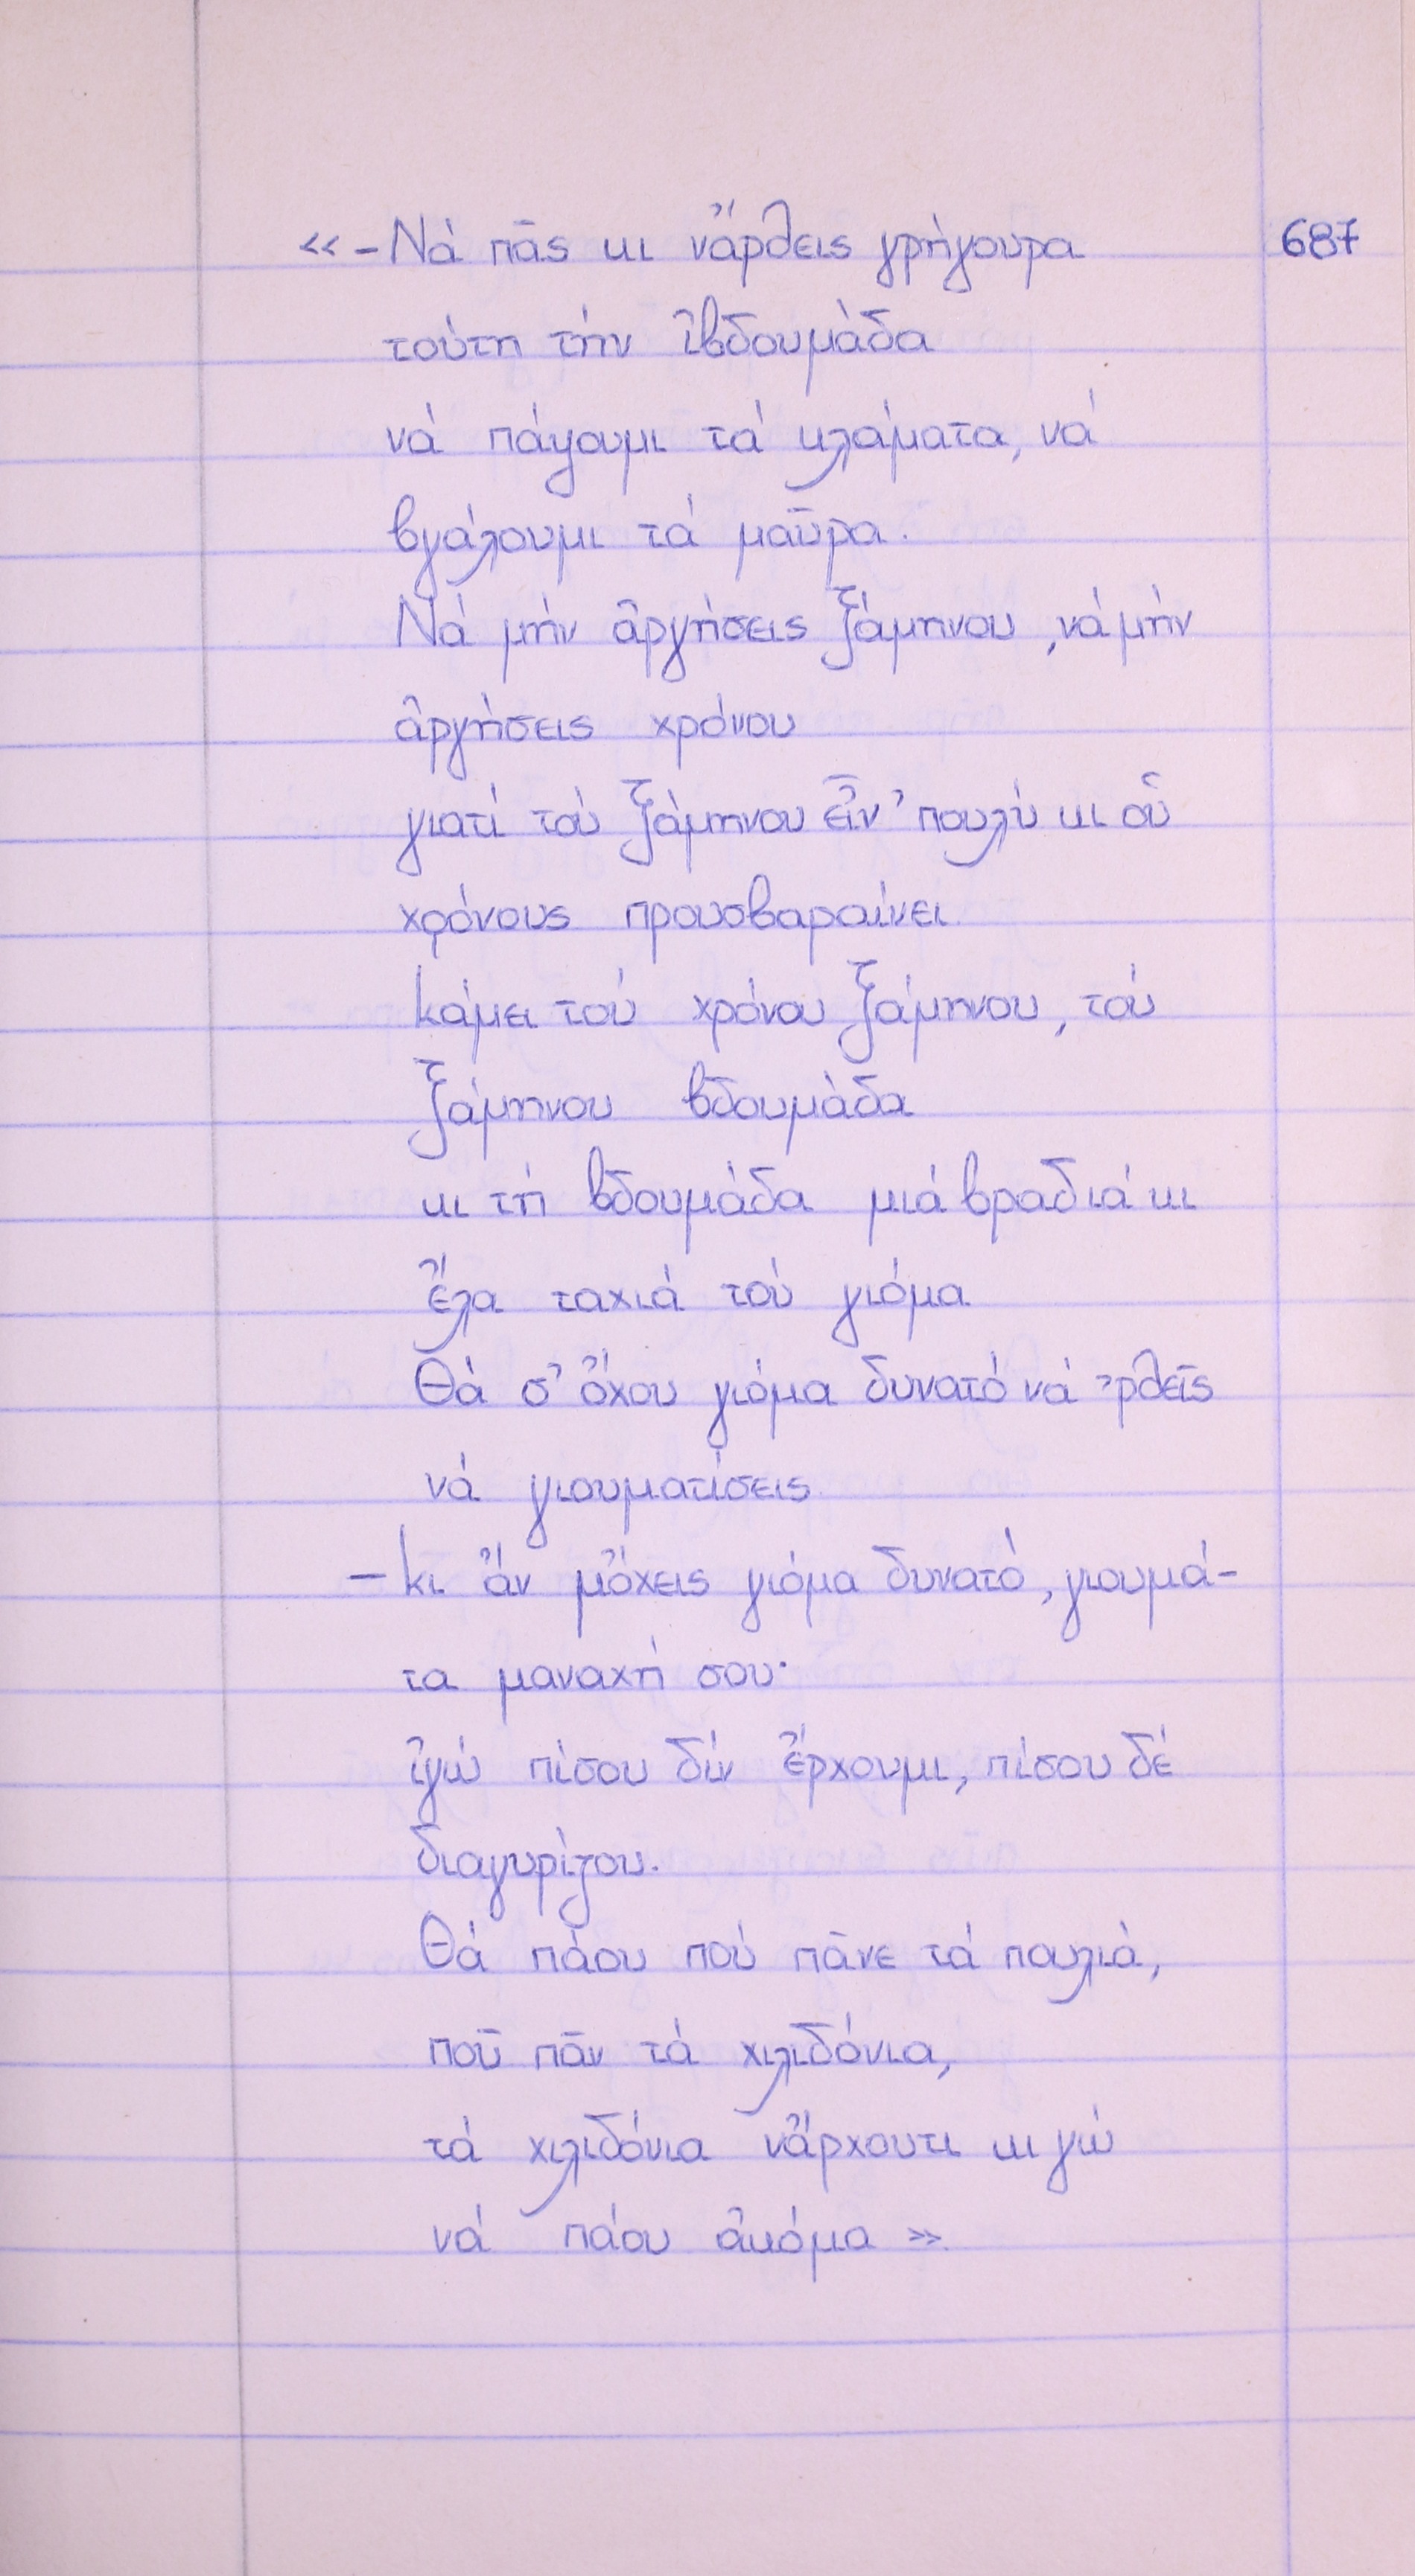 «-Νά πᾶς κι νἄρθεις γρήγουρα 687
τούτη τήν ἰβδουμάδα
νά πάψουμι τά κλάματα, νά
βγάλουμι τά μαῦρα.
Νά μήν ἀργήσεις ξάμηνου, νά μήν
ἀργήσεις χρόνου
γιατί τού ξάμηνου εἶν' πουλύ κι οὑ
χρόνους προυσβαραίνει.
κάμει τού χρόνου ξάμηνου, τού
ξάμηνου βδουμάδα
κι τή βδουμάδα μιά βραδιά κι
ἔλα ταχιά τού γιόμα
Θά σ' ὄχου γιόμα δυνατό νά 'ρθεῖς
νά γιουματίσεις
- κι ἄν μὄχεις γιόμα δυνατό, γιουμά-
τα μαναχή σου·
ἰγώ πίσου δίν ἔρχουμι, πίσου δέ
διαγυρίζου.
Θά πάου πού πᾶνε τά πουλιά,
ποῦ πᾶν τά χιλιδόνια,
τά χιλιδόνια νἄρχουτι κι γώ
νά πάου ἀκόμα».